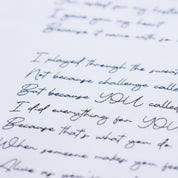 I gave you my heart
Because it came with so
I played through the sweat
Not because challenge calle
But because YOU called
I did everything for YOU
Because that's what you do
When someone makes you fee